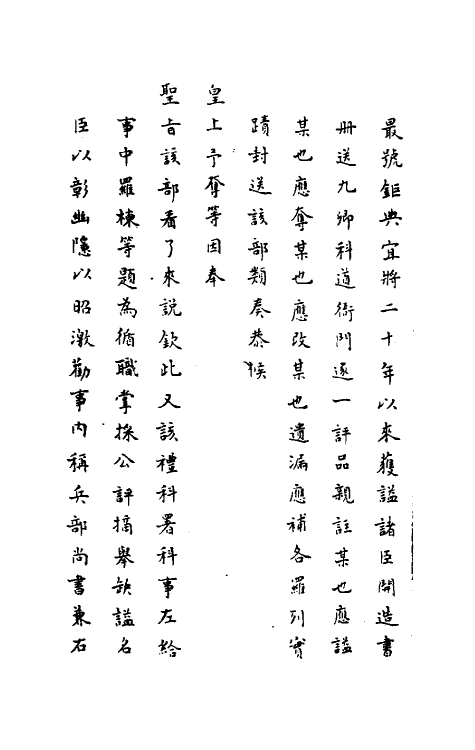 最號鉅典宜將二十年以來獲謚諸臣開造書
冊送九卿科道衙門逐一評品親註某也應謚
某也應奪某也應改某也遺漏應補各羅列實
蹟封送該部類奏恭候
皇上予奪等因奉
聖旨該部看了來說欽此又該禮科署科事左給
事中羅棟等題為循職掌採公評摘舉缺謚名
臣以彰幽隱以昭激勸事內稱兵部尚書兼右